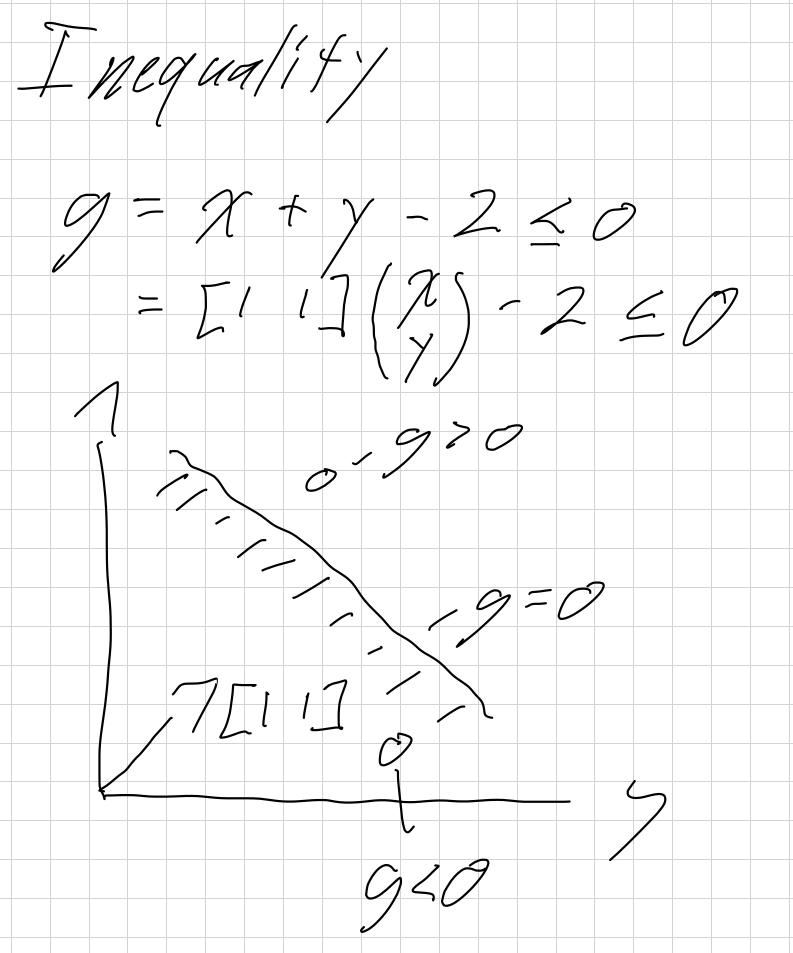 Inequality
g = x + y - 2 ≤ 0
= [1 1] (x y) - 2 ≤ 0
g > 0
g = 0
[1 1]
g < 0